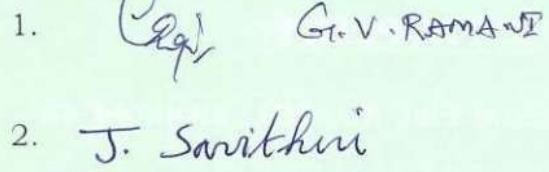 1. G.V. RAMANI
2. J. Savithri